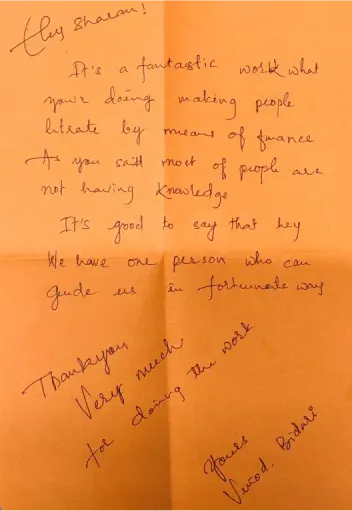 Hey Sharan!
It's a fantastic work what
your doing making people
litrate by means of finance
As you said most of people are
not having knowledge
It's good to say that hey
We have one person who can
guide us in fortunate way
Thankyou
Very much
for doing the work
Yours
Vinod. Bidari